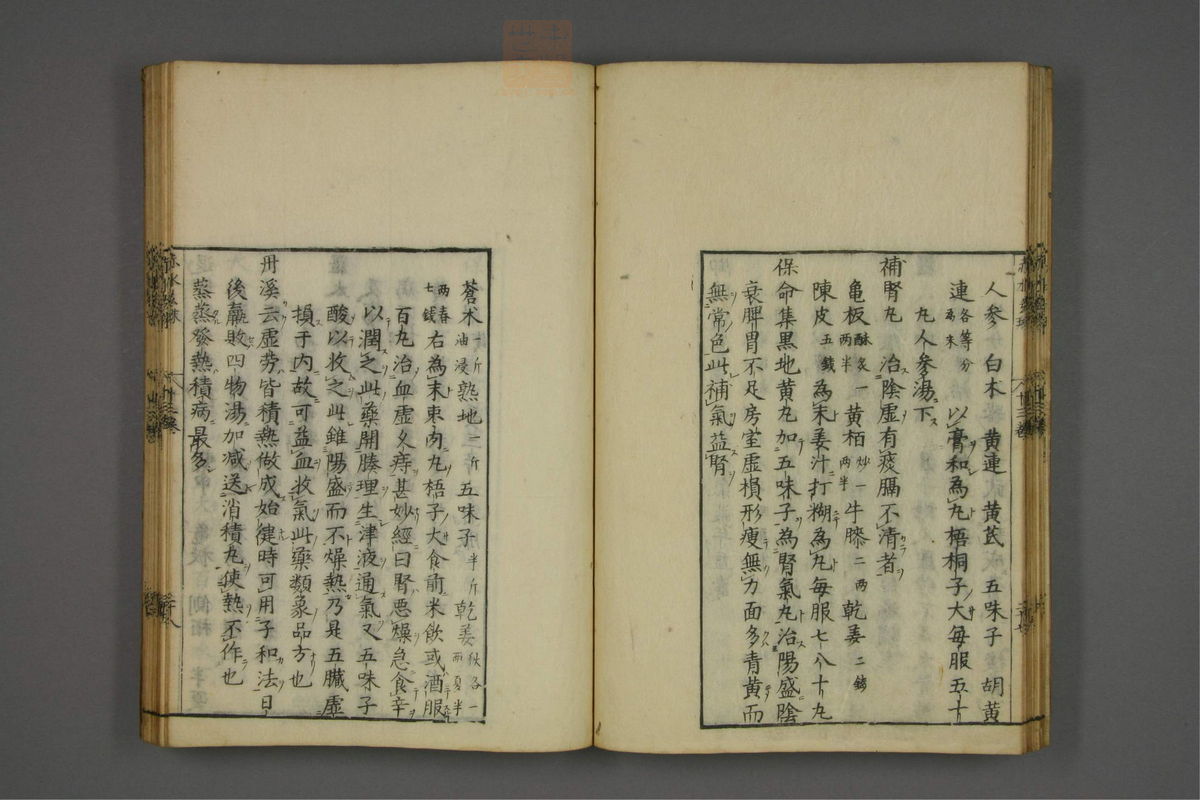 人参 白朮 黄連 黄茋 五味子 胡黄
連各等分為末 以膏和為丸梧桐子大毎服五十
丸人参湯下
補腎丸 治陰虚有痰膈不清者
亀板酥炙一両半 黄栢炒一両半 牛膝二両 乾姜二銭
陳皮五銭 為末姜汁打糊為丸毎服七八十丸
保命集黒地黄丸加五味子為腎氣丸治陽盛陰
衰脾胃不足房室虚損形瘦無力面多青黄而
無常色此補氣益腎
蒼朮十斤油浸 熟地一斤 五味子半斤 乾姜秋各一両夏半
両春七銭 右為末棗肉丸梧子大食前米飲或酒服
百丸治血虚久痔甚妙經曰腎悪燥急食辛
以潤之此藥開腠理生津液通氣又五味子
酸以收之此雖陽盛而不燥熱乃是五臓虚
損于内故可益血收氣此藥類象品方也
丹溪云虚労皆積熱做成始健時可用子和法日
後羸敗四物湯加减送消積丸使熱不作也
蒸蒸發熱積病最多